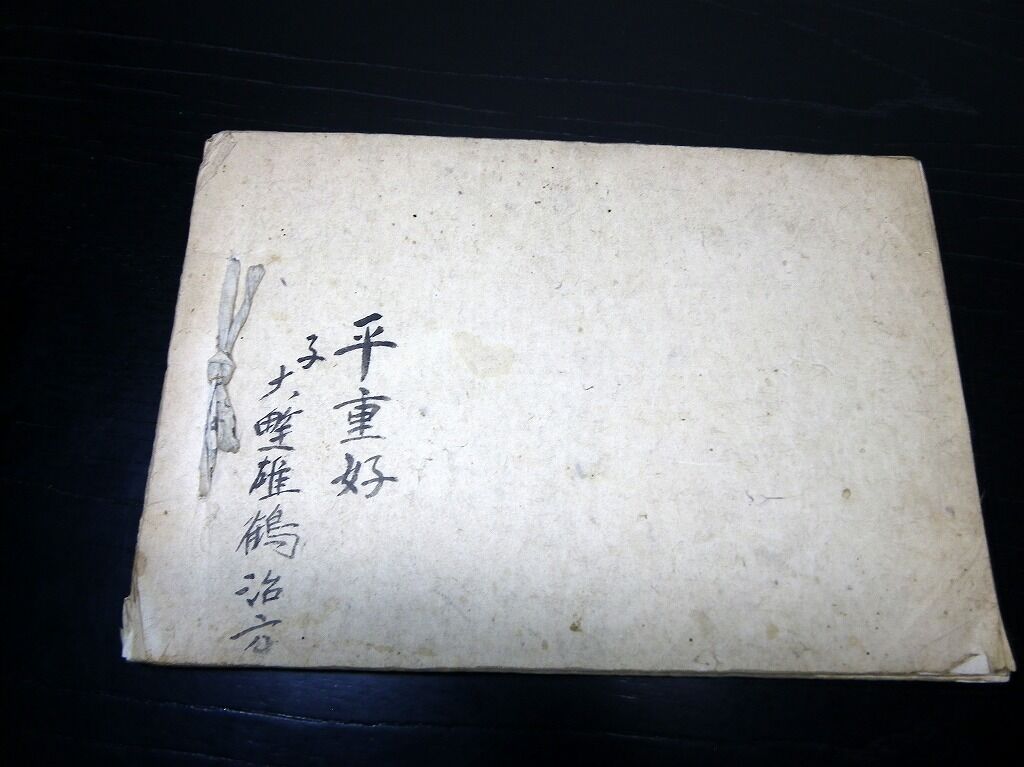 平重好
子大畦雄鶴治方